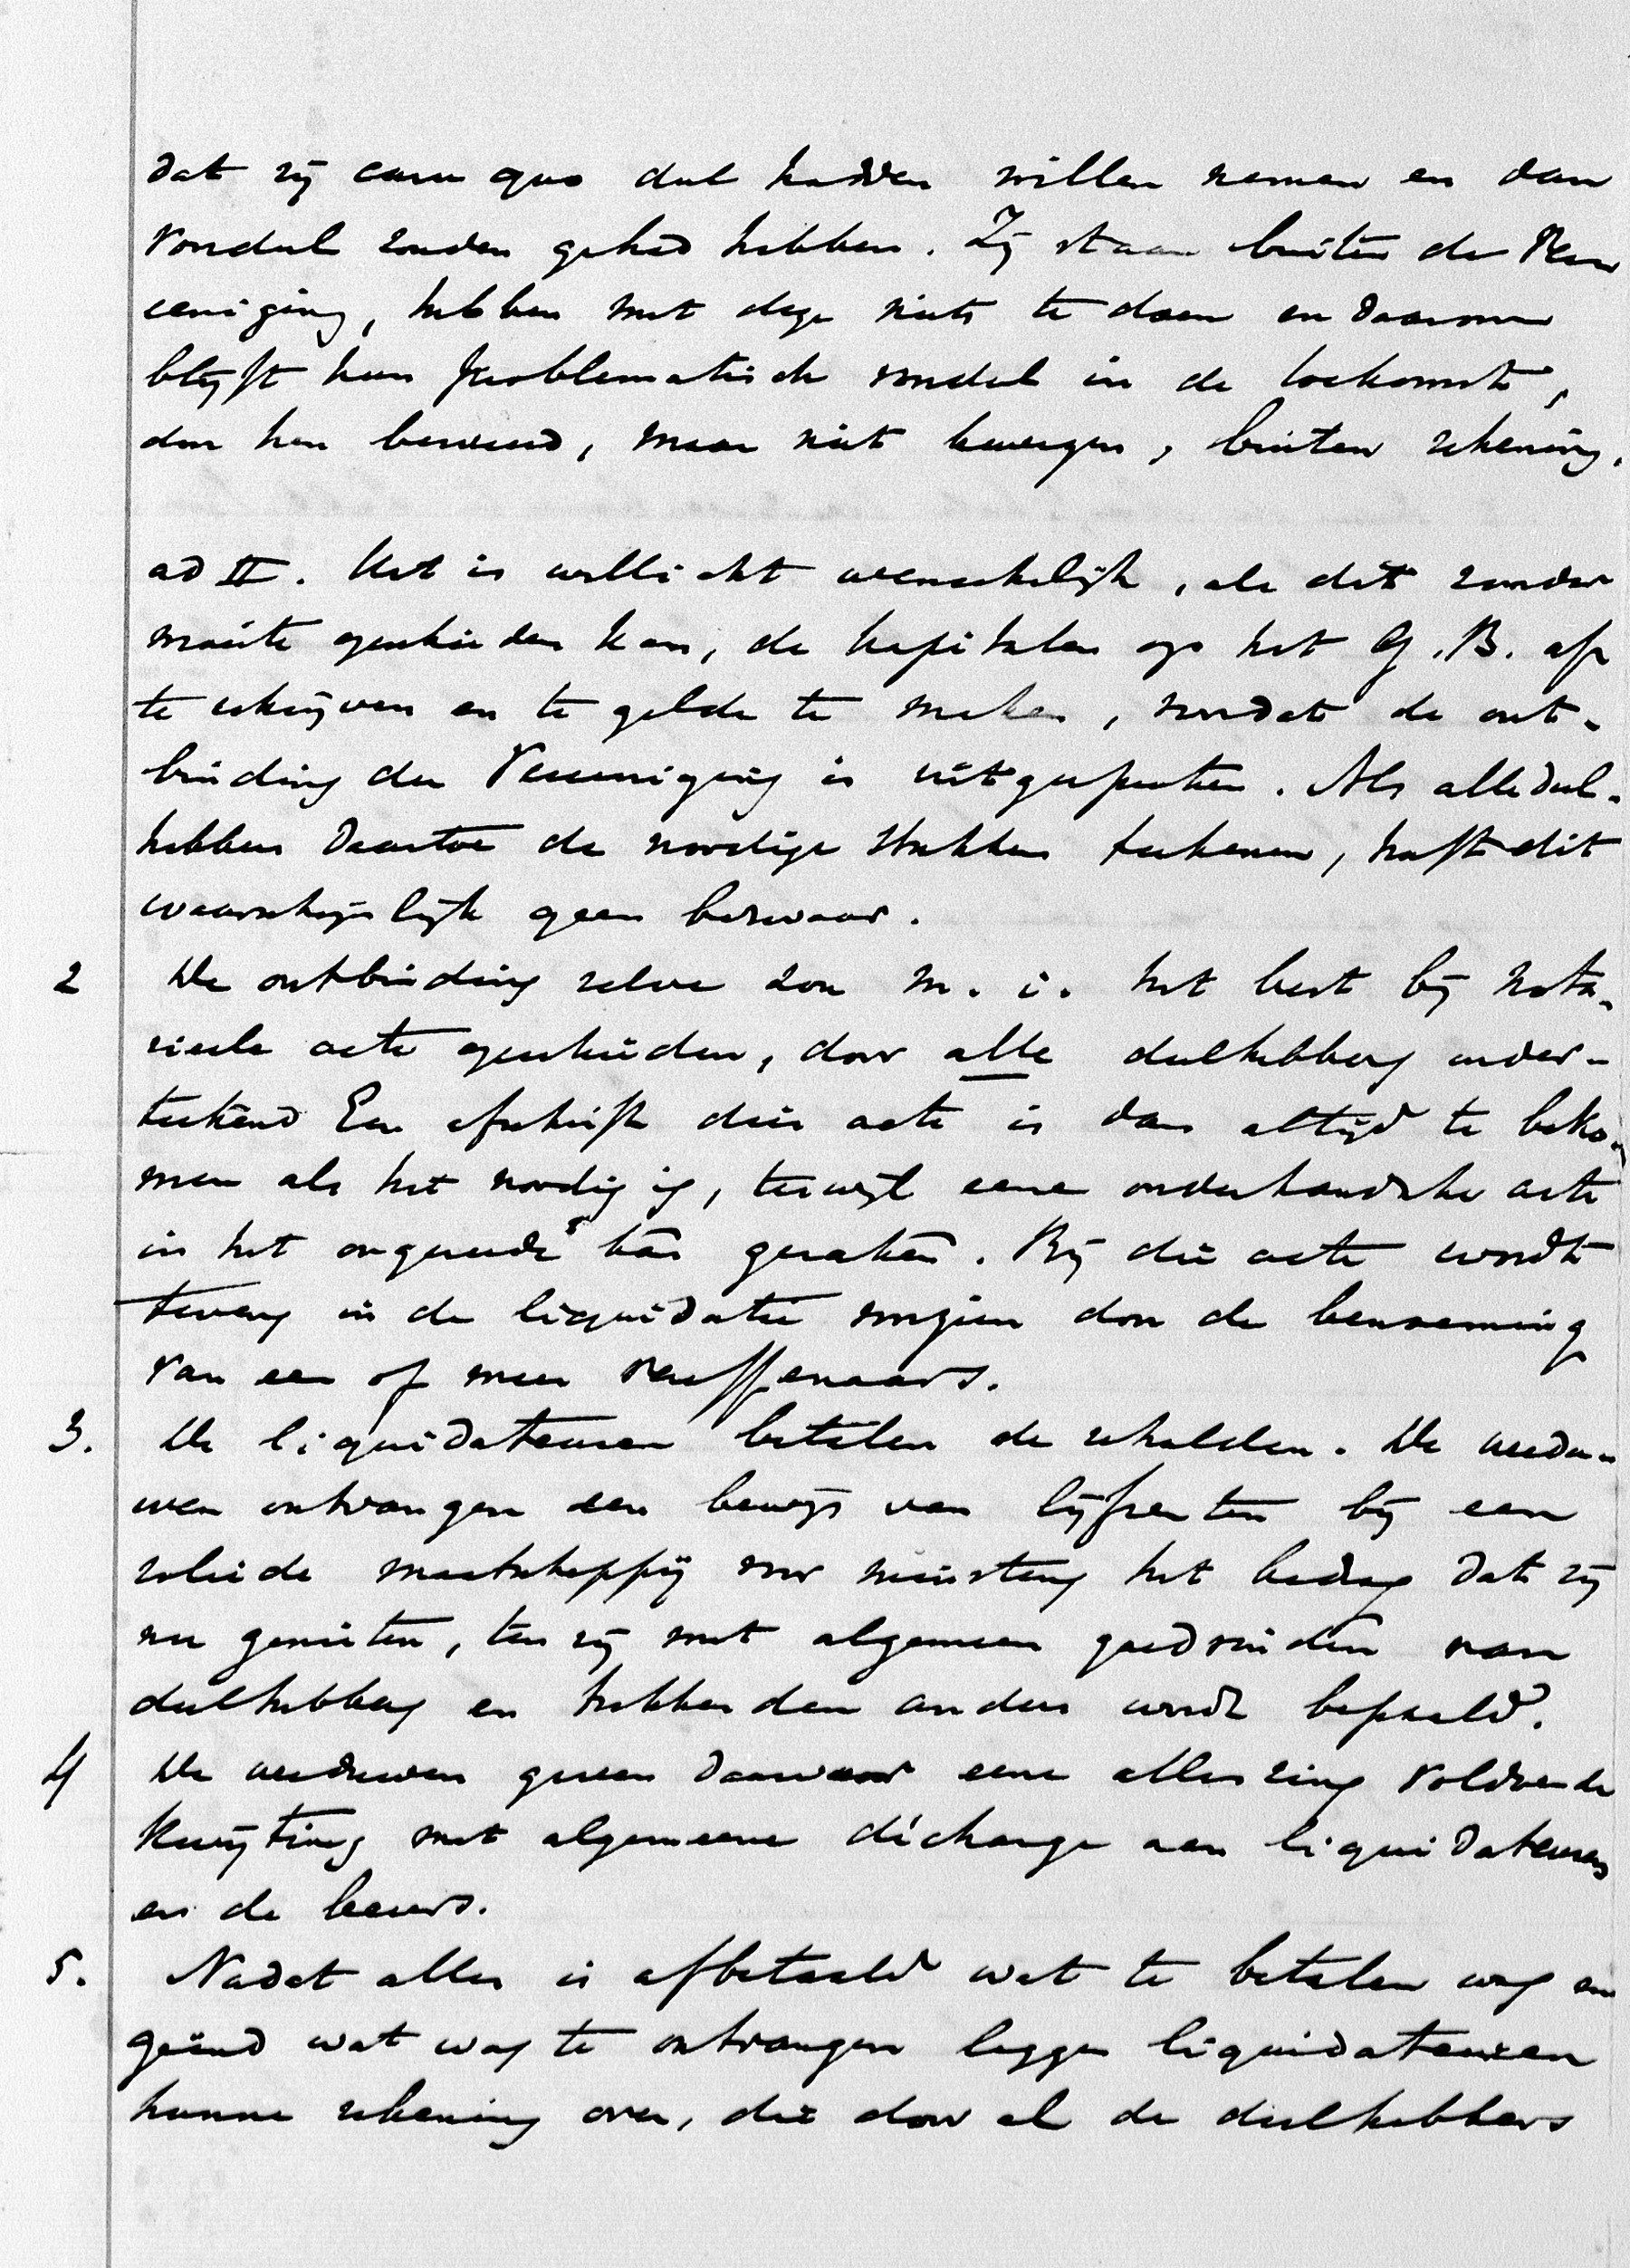 dat zij casu quo deel hadden willen nemen en dan
voordeel zouden gehad hebben. Zij staan buiten de Ver
eeniging, hebben met deze niets te doen en daarom
blijft hun problematisch voordeel in de toekomst,
door hen beweerd, maar niet bewezen, buiten rekening.
ad II. Het is wellicht wenschelijk, als dit zonder
moeite geschieden kan, de kapitalen op het G.B. af
te schrijven en te gelde te maken, voordat de ont-
binding der Vereeniging is uitgesproken. Als alle deel-
hebbers daartoe de noodige stukken teekenen, heeft dit
waarschijnlijk geen bezwaar.
2 De ontbinding zelve zou m. i. het best bij nota-
rieele acte geschieden, door alle deelhebbers onder-
teekend Een afschrift dier acte is dan altijd te beko-
men als het noodig is, terwijl eene onderhandsche acte
in het ongereede kan geraken. Bij die acte wordt
tevens in de liquidatie voorzien door de benoeming
van een of meer vereffenaars.
3. De liquidateuren betalen de schulden. De wedu-
wen ontvangen een bewijs van lijfrenten bij een
solide maatschappij voor minstens het bedrag dat zij
nu genieten, ten zij met algemeen goedvinden van
deelhebbers en trekkenden anders wordt bepaald.
4 De weduwen geven daarvoor eene alleszins voldoende
kwijting met algemeene décharge aan liquidateuren
en de leeuws.
5. Nadat alles is afbetaald wat te betalen was en
geind wat was te ontvangen leggen liquidateuren
hunne rekening over, die door al de deelhebbers